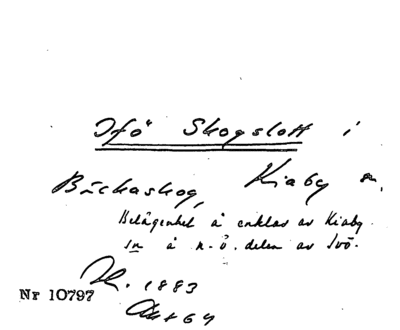 Ifö Skogslott i
Bäckaskog, Kiaby sn.
Belägenhet å enklav av Kiaby
sn å n.ö. delen av Ivö.
1883
Nr 10797